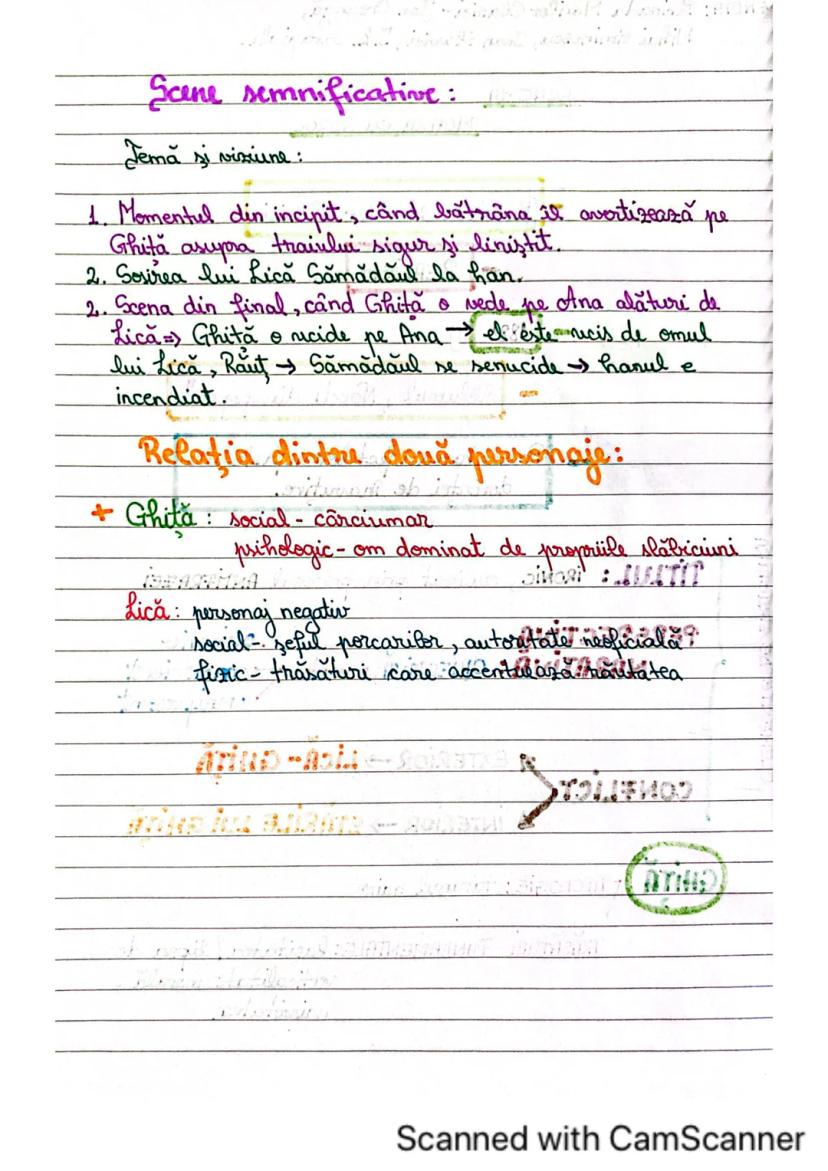 Scene semnificative:
Temă și viziune:
1. Momentul din incipit, când bătrâna îl avertizează pe
Ghiță asupra traiului sigur și liniștit.
2. Sosirea lui Lică Sămădăul la han.
2. Scena din final, când Ghiță o vede pe Ana alături de
Lică => Ghiță o ucide pe Ana → el este ucis de omul
lui Lică, Răuț → Sămădăul se senucide → hanul e
incendiat.
Relația dintre două personaje:
+ Ghiță: social - cârciumar
psihologic - om dominat de propriile slăbiciuni
Lică: personaj negativ
social - șeful porcarilor, autoritate neoficială
fizic - trăsături care accentuează răutatea
TITLUL: IRONIC
EXTERIOR → LICĂ - GHIȚĂ
CONFLICT
INTERIOR → STĂRILE LUI GHIȚĂ
GHIȚĂ
Scanned with CamScanner